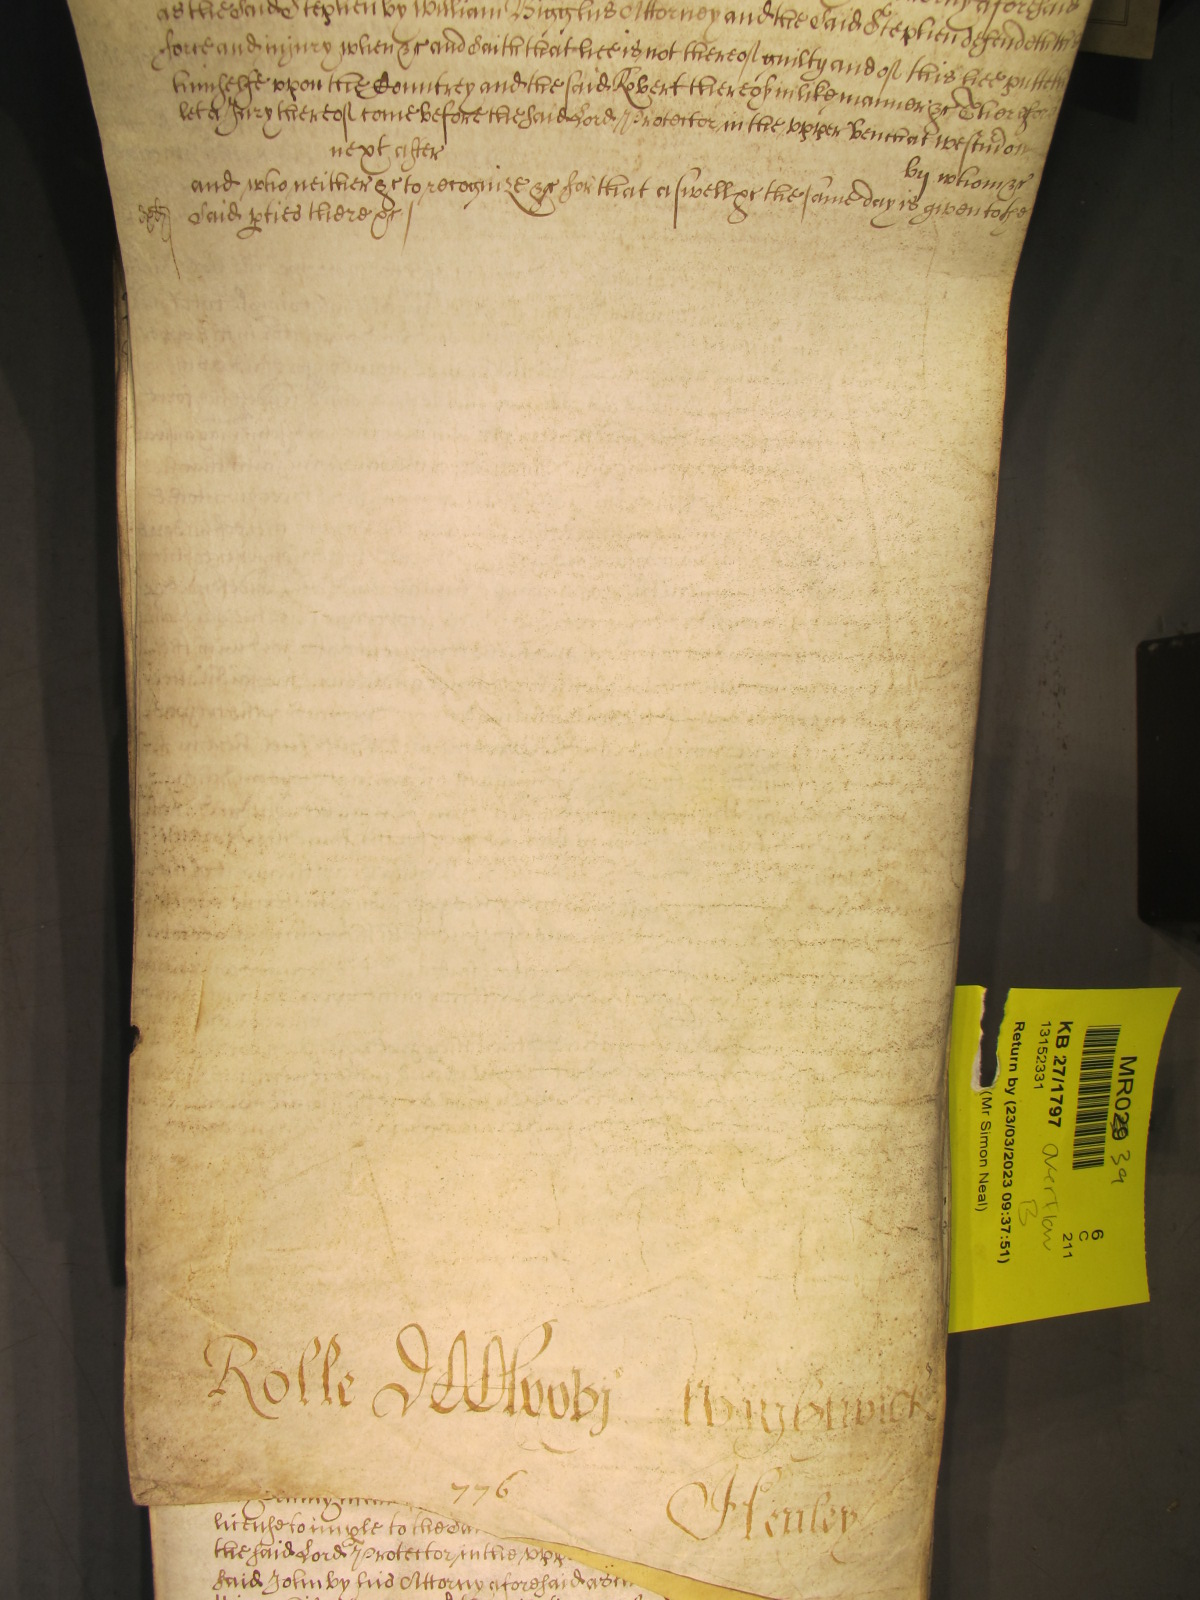 as the said Stephen by William Bigglus Attorney and the said Stephen defendeth the
force and injury when &c and saith that hee is not thereof guilty and of this hee putteth
himselfe uppon the Countrey and the said Robert thereof in like manner &c Therefore
let a Jury thereof come before the said Lord Protector in the upper bench at Westm
next after
by whom &c
and who neither &c to recognize &c for that aswell &c the same day is given to the
said pties there &c
Rolle
Warburwick
776
Henley
license to imple to the
the said Lord Protector in the upp
said John by his Attorny aforesaid as
MR029 39
6
C
211
KB 27/1797
overflow
B
13152331
Return by (23/03/2023 09:37:51)
(Mr Simon Neal)